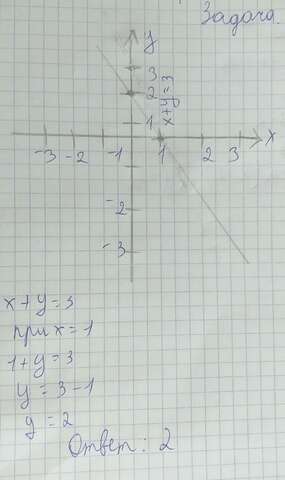 Задача.
y
3
2
1
x
-3 -2 -1 1 2 3
-2
-3
x+y=3
x+y=3
при x=1
1+y=3
y=3-1
y=2
Ответ: 2